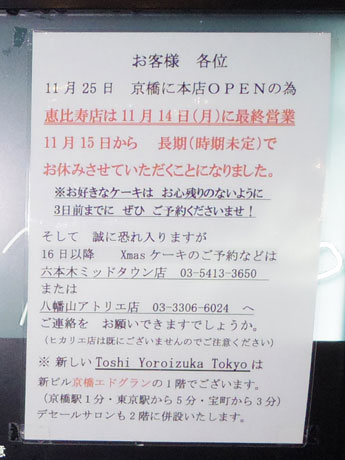 お客様 各位
11月25日 京橋に本店OPENの為
恵比寿店は11月14日(月)に最終営業
11月15日から 長期(時期未定)で
お休みさせていただくことになりました。
※お好きなケーキは お心残りのないように
3日前までに ぜひ ご予約くださいませ！
そして 誠に恐れ入りますが
16日以降 Xmasケーキのご予約などは
六本木ミッドタウン店 03-5413-3650
または
八幡山アトリエ店 03-3306-6024 へ
ご連絡を お願いできますでしょうか。
(ヒカリエ店は既にございませんのでご注意ください)
※ 新しいToshi Yoroizuka Tokyoは
新ビル京橋エドグランの1階でございます。
(京橋駅1分・東京駅から5分・宝町から3分)
デセールサロンも2階に併設いたします。